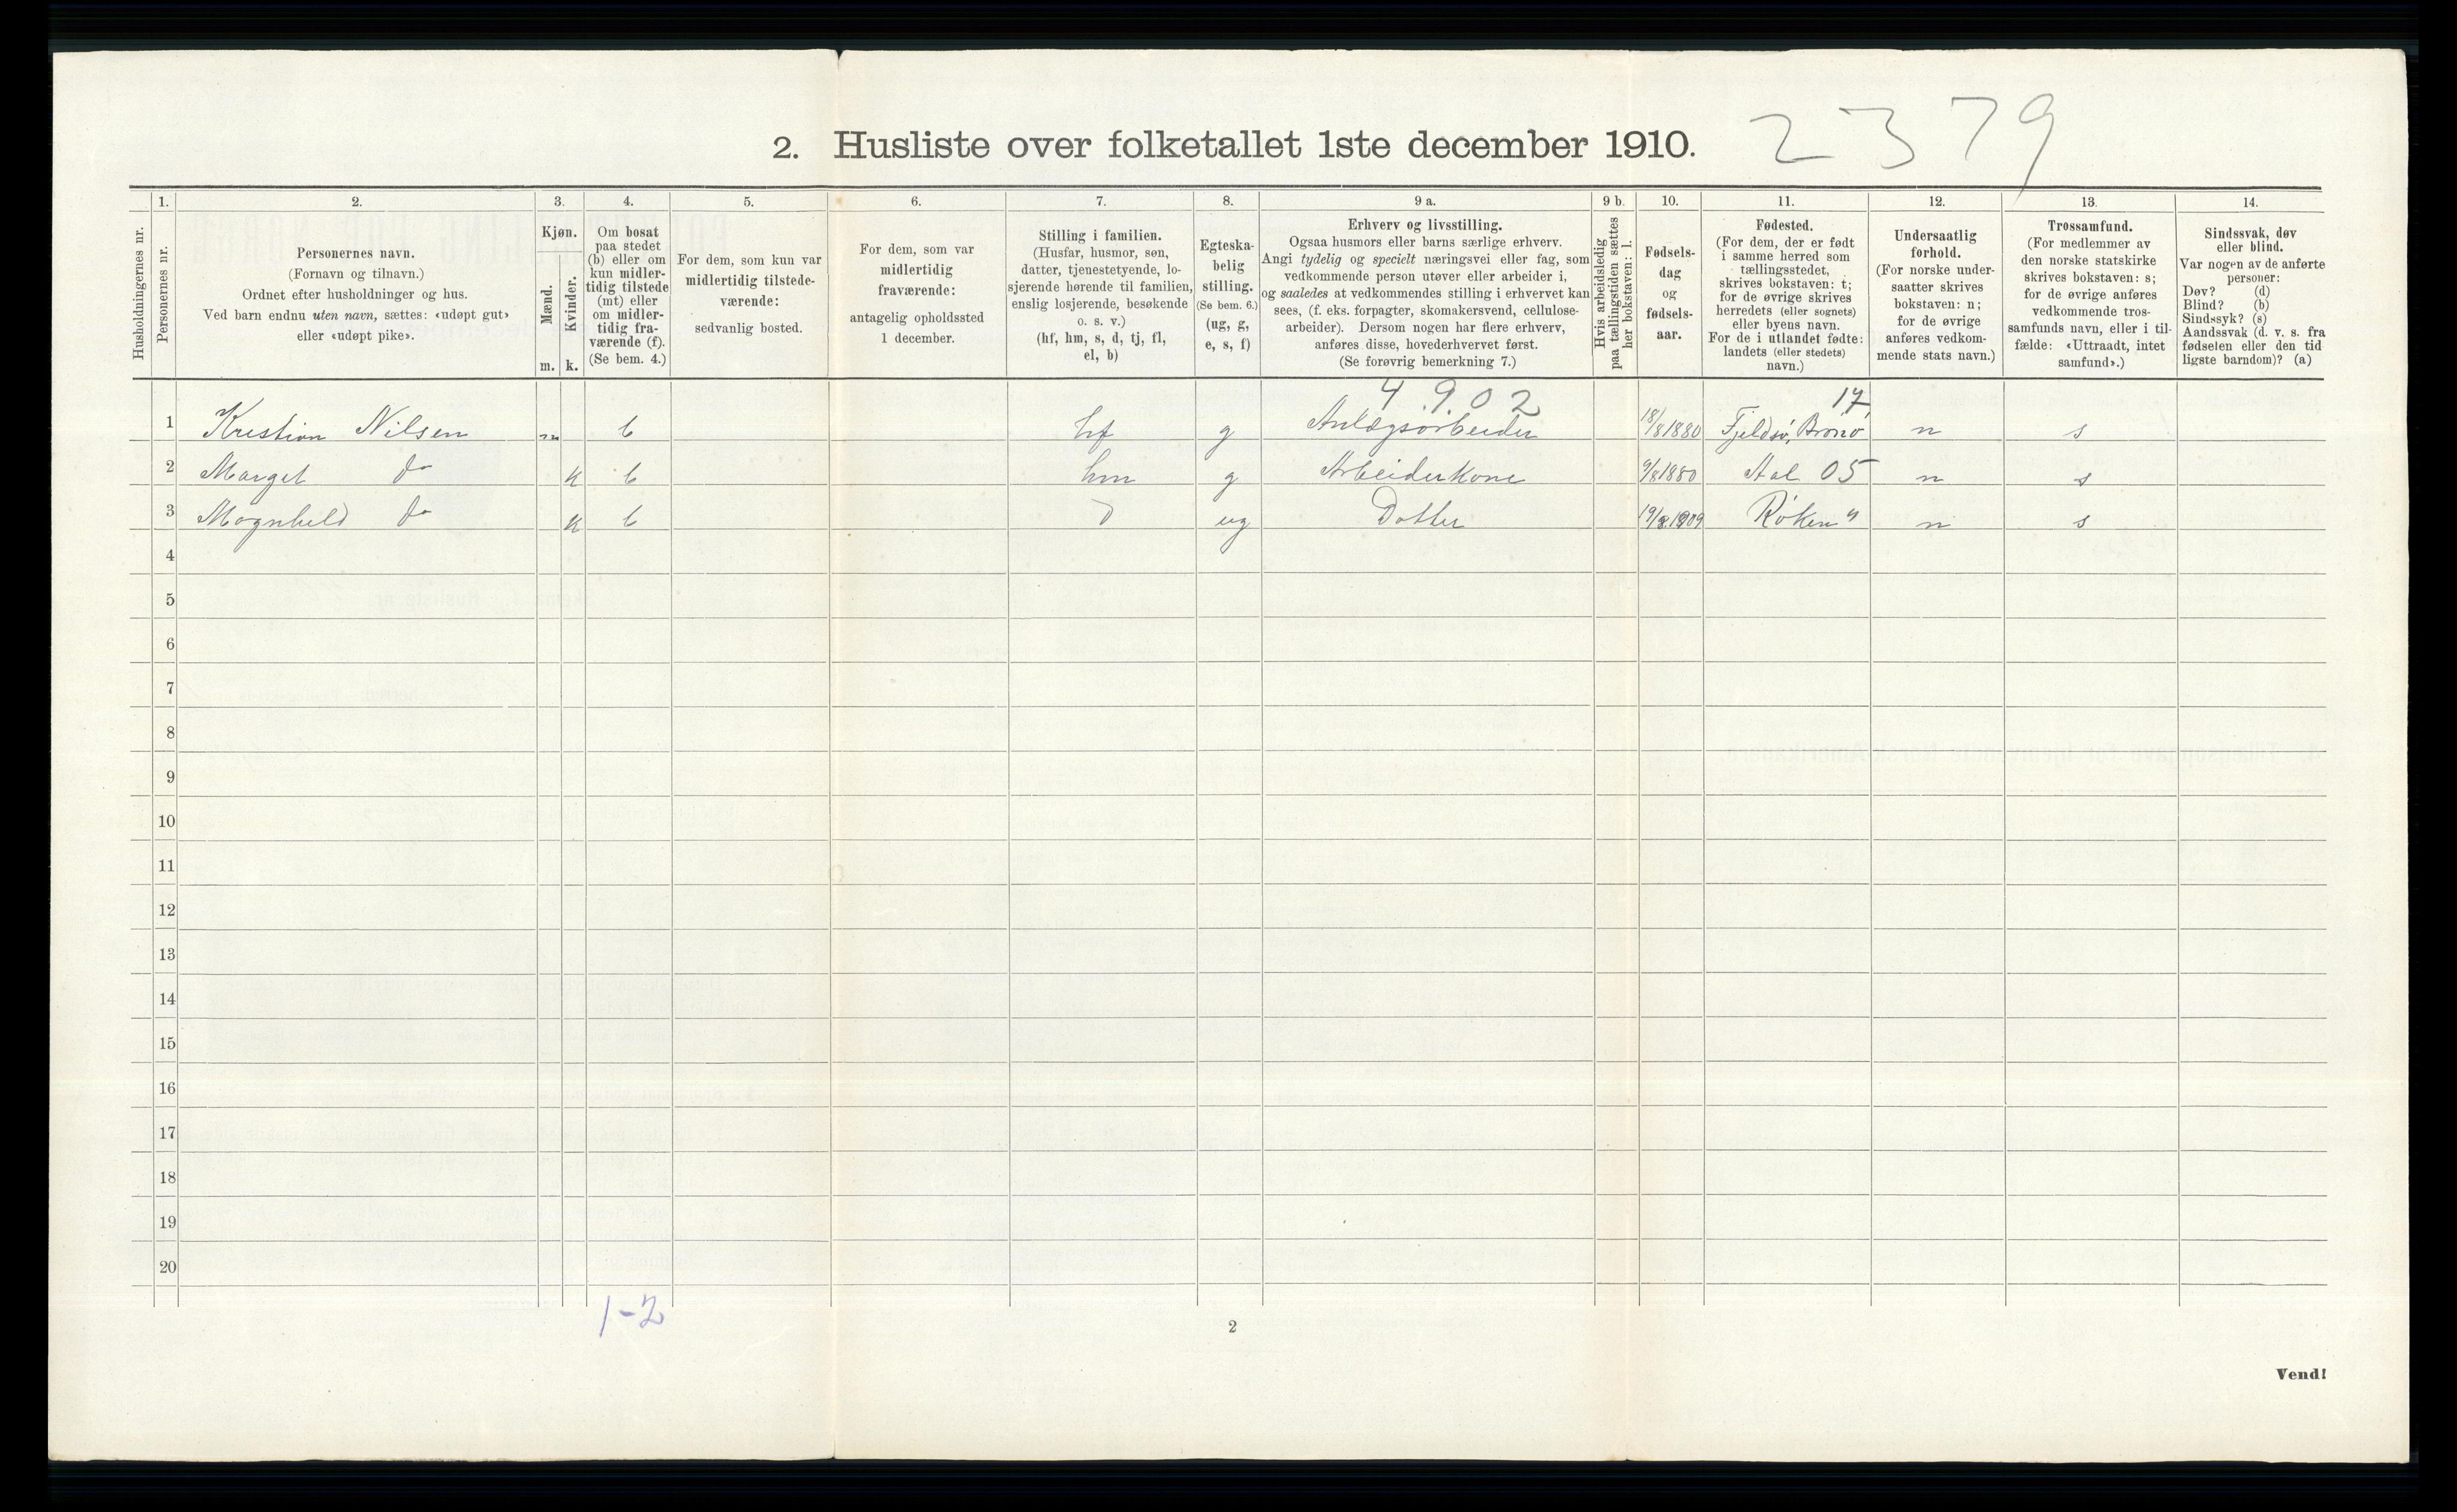 2. Husliste over folketallet 1ste december 1910. 2379
Husholdningernes nr.
1. Personernes nr.
2. Personernes navn.
(Fornavn og tilnavn.)
Ordnet efter husholdninger og hus.
Ved barn endnu uten navn, sættes: «udøpt gut»
eller «udøpt pike».
3. Kjøn.
Mænd. Kvinder.
m. k.
4. Om bosat
paa stedet
(b) eller om
kun midler-
tidig tilstede
(mt) eller
om midler-
tidig fra-
værende (f).
(Se bem. 4.)
5. For dem, som kun var
midlertidig tilstede-
værende:
sedvanlig bosted.
6. For dem, som var
midlertidig
fraværende:
antagelig opholdssted
1 december.
7. Stilling i familien.
(Husfar, husmor, søn,
datter, tjenestetyende, lo-
sjerende hørende til familien,
enslig losjerende, besøkende
o. s. v.)
(hf, hm, s, d, tj, fl,
el, b)
8. Egteska-
belig
stilling.
(Se bem. 6.)
(ug, g,
e, s, f)
9 a. Erhverv og livsstilling.
Ogsaa husmors eller barns særlige erhverv.
Angi tydelig og specielt næringsvei eller fag, som
vedkommende person utøver eller arbeider i,
og saaledes at vedkommendes stilling i erhvervet kan
sees, (f. eks. forpagter, skomakersvend, cellulose-
arbeider). Dersom nogen har flere erhverv,
anføres disse, hovederhvervet først.
(Se forøvrig bemerkning 7.)
9 b. Hvis arbeidsledig
paa tællingstiden sættes
her bokstaven: l.
10. Fødsels-
dag
og
fødsels-
aar.
11. Fødested.
(For dem, der er født
i samme herred som
tællingsstedet,
skrives bokstaven: t;
for de øvrige skrives
herredets (eller sognets)
eller byens navn.
For de i utlandet fødte:
landets (eller stedets)
navn.)
12. Undersaatlig
forhold.
(For norske under-
saatter skrives
bokstaven: n;
for de øvrige
anføres vedkom-
mende stats navn.)
13. Trossamfund.
(For medlemmer av
den norske statskirke
skrives bokstaven: s;
for de øvrige anføres
vedkommende tros-
samfunds navn, eller i til-
fælde: «Uttraadt, intet
samfund».)
14. Sindssvak, døv
eller blind.
Var nogen av de anførte
personer:
Døv? (d)
Blind? (b)
Sindssyk? (s)
Aandssvak (d. v. s. fra
fødselen eller den tid
ligste barndom)? (a)
4902 17
1 Kristian Nilsen m b hf g Anlægsarbeider 18/8 1880 Fjeldsø, Brønø n s
2 Marget do k b hm g Arbeiderkone 9/8 1880 Aal 05 n s
3 Magnhild do k b d ug Datter 19/8.1909 Røken " n s
4
5
6
7
8
9
10
11
12
13
14
15
16
17
18
19
20
1-2
2
Vend!